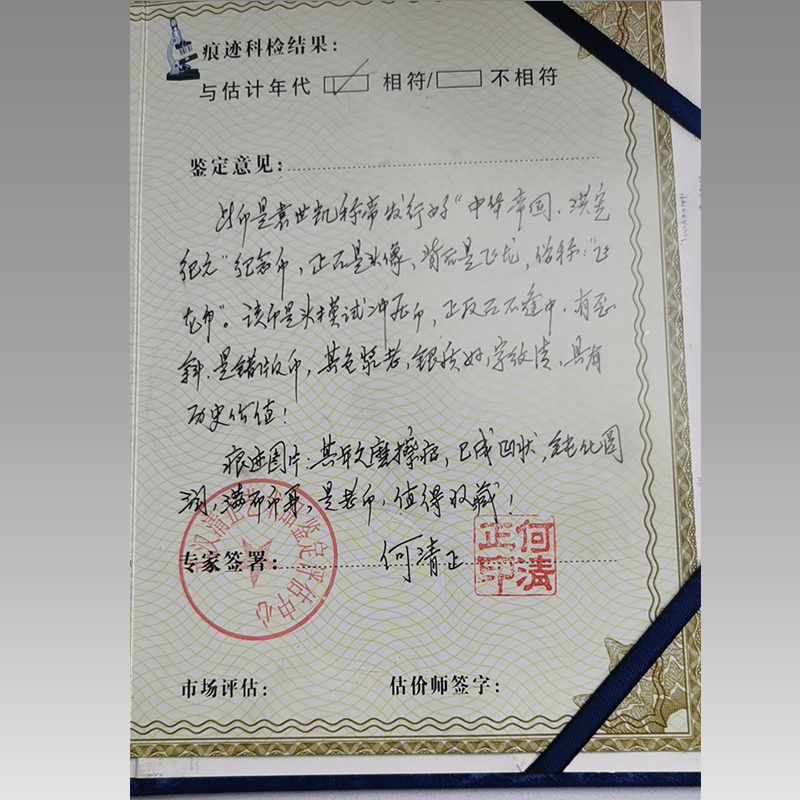 痕迹科检结果：
与估计年代 相符/ 不相符
鉴定意见：
此币是袁世凯称帝发行好“中华帝国、洪宪
纪元”纪念币，正面是头像，背面是飞龙，俗称：“飞
龙币”。该币是头模试冲在币，正反面不逢中，有歪
斜，是错版币，其包浆老，银质好，字纹清，具有
历史价值！
痕迹图片：其年久磨擦痕，已成凹状，钝化圆
润，满布币身，是老币，值得收藏！
专家签署：何清正
何清正印
鉴定评估中心
市场评估： 估价师签字：